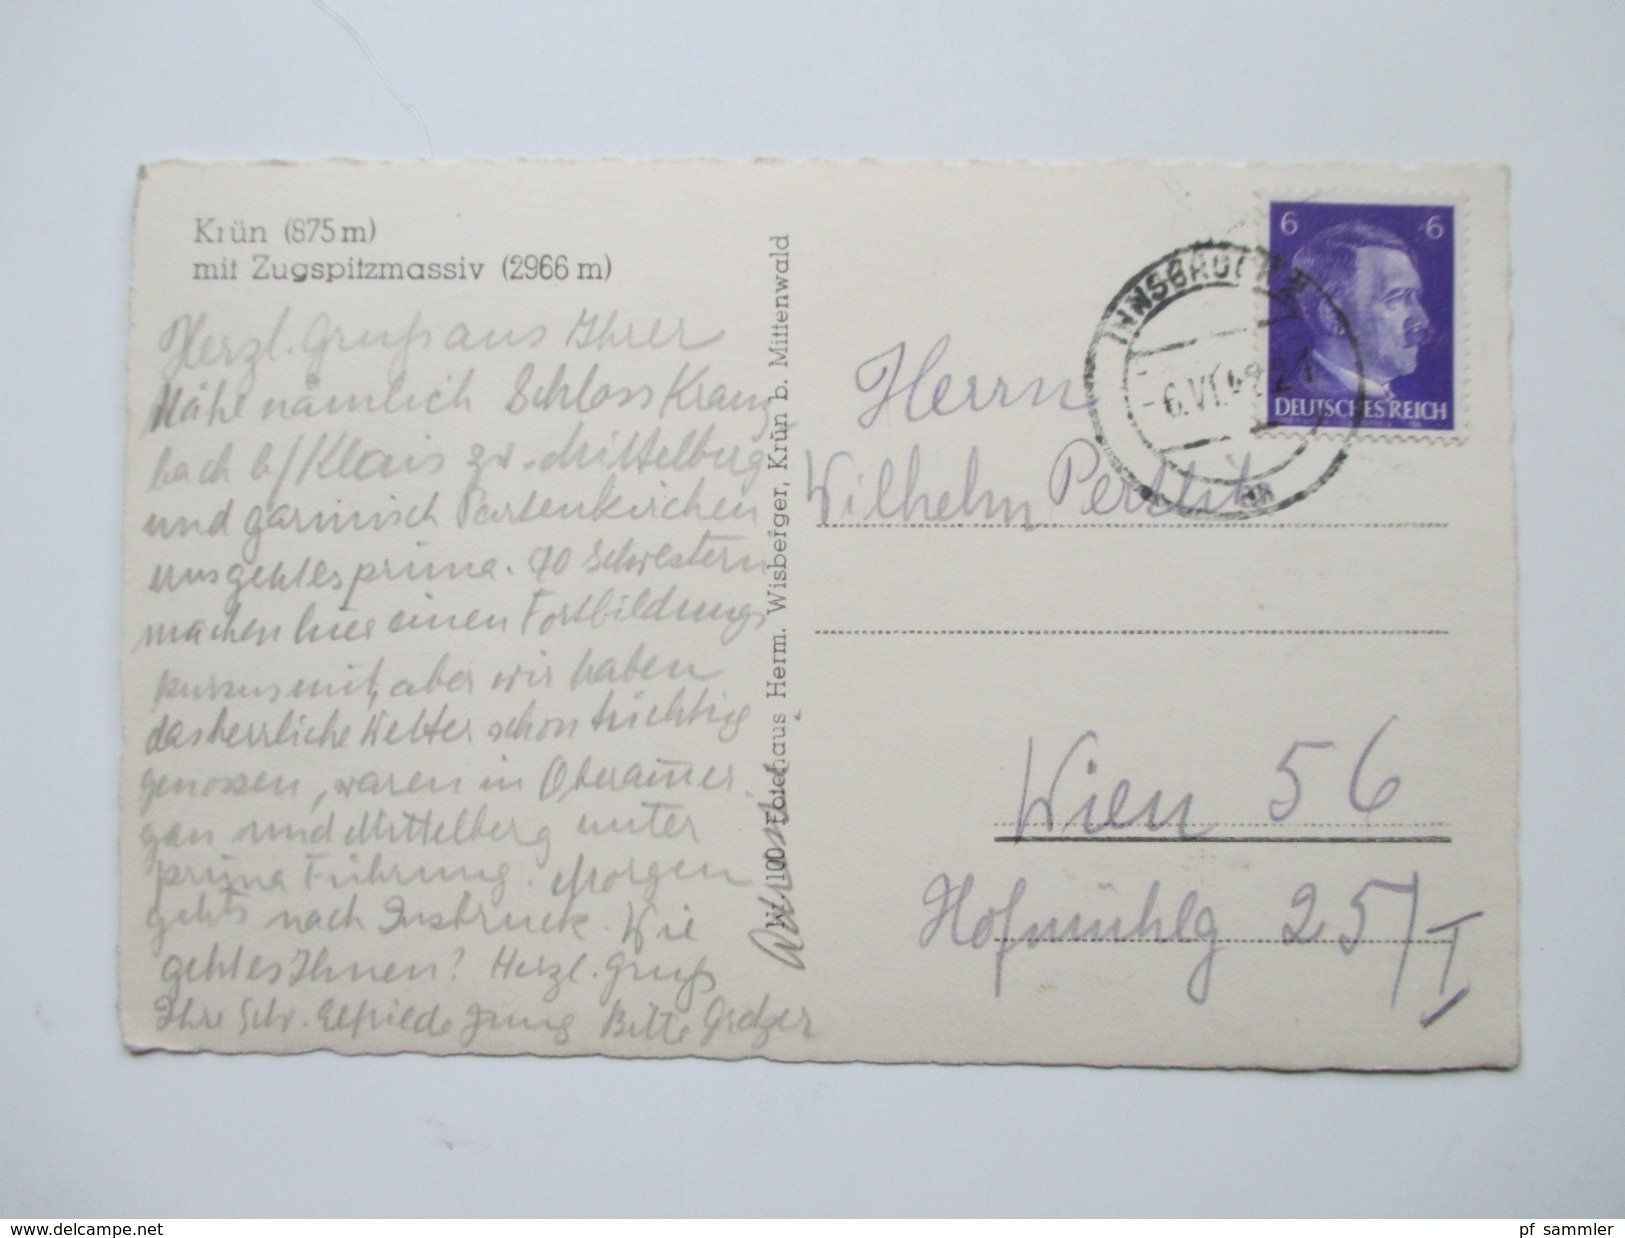 Krün (875 m)
mit Zugspitzmassiv (2966 m)
Herzl. Gruß aus Ihrer
Nähe nämlich Schloss Kranz
bach b/Klais zw. Mittelberg
und Garmisch Partenkirchen
uns geht es prima. 70 Schwestern
machen hier einen Fortbildungs
kursus mit, aber wir haben
das herrliche Wetter schon tüchtig
genossen, waren in Oberammer
gau und Mittelberg unter
prima Führung. Morgen
gehts nach Insbruck. Wie
geht es Ihnen? Herzl. Gruß
Ihre Schw. Elfriede Jung Bitte
Nr. 100 Fotohaus Herm. Wisberger, Krün b. Mittenwald
INNSBRUCK
6.VI.4
6 6
DEUTSCHES REICH
Herrn
Wilhelm
Wien 56
Hofmühlg 25/I
www.delcampe.net
pf_sammler